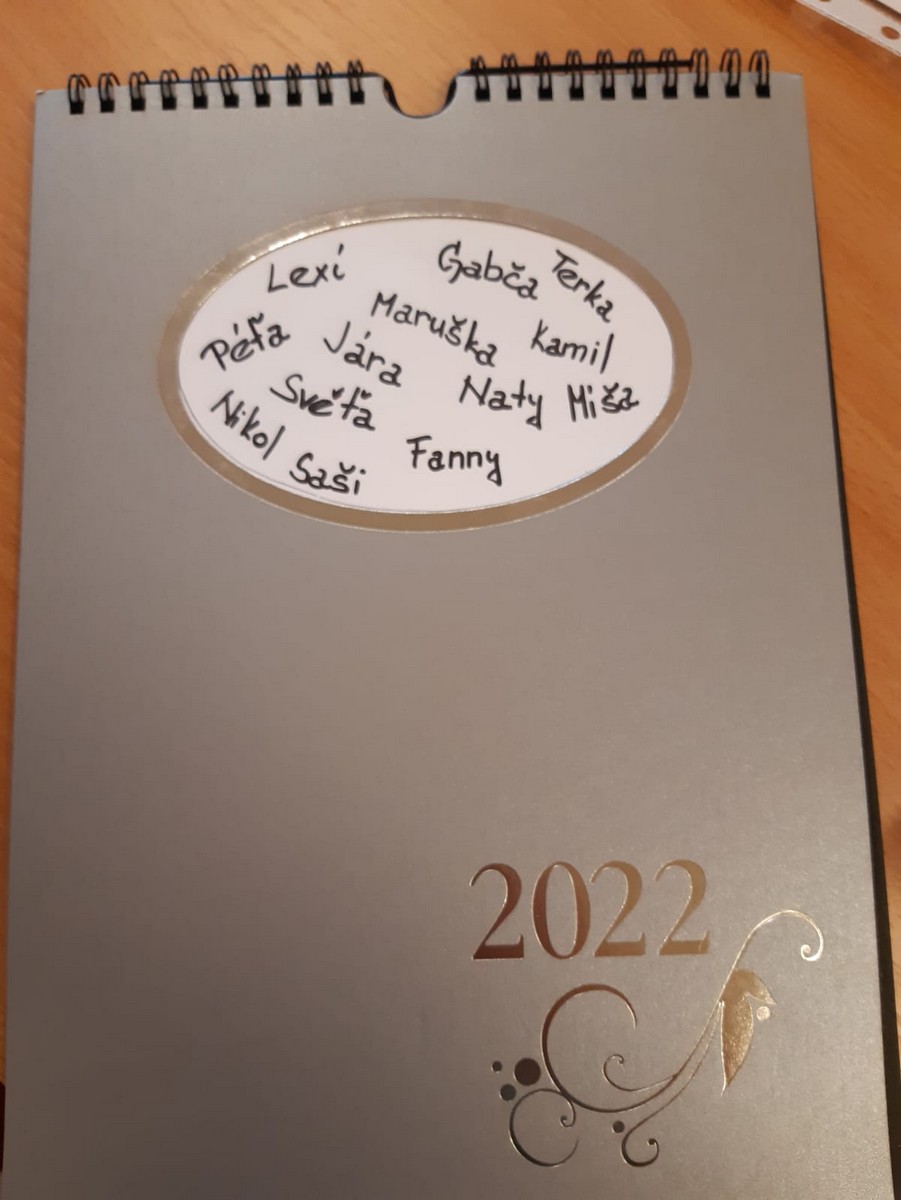 Lexi
Gabča
Terka
Maruška
Kamil
Péťa
Jára
Naty
Miša
Světa
Nikol
Fanny
Saši
2022